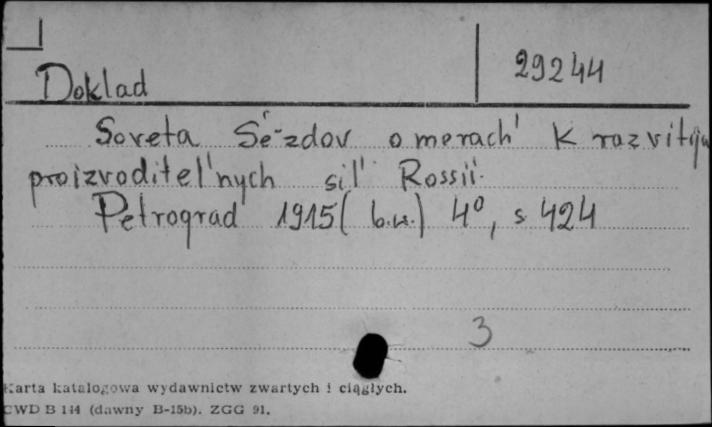 Doklad 29244
Soveta Sé-zdov o merach' k razvitiju
proizvoditel'nych sil' Rossii.
Petrograd 1915 (b.w.) 4°, s. 424
3
Karta katalogowa wydawnictw zwartych i ciągłych.
CWD B 144 (dawny B-15b). ZGG 91.